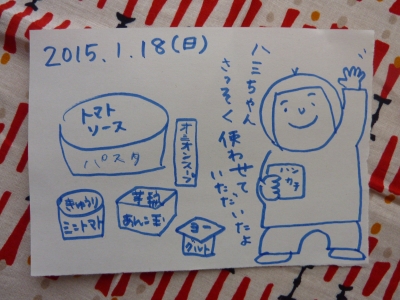 2015.1.18(日)
ハミちゃん
さっそく使わせて
いただいたよ
トマト
ソース
パスタ
オニオンスープ
きゅうり
ミニトマト
芋輪
あんこ玉
ヨー
グルト
ハン
カチ